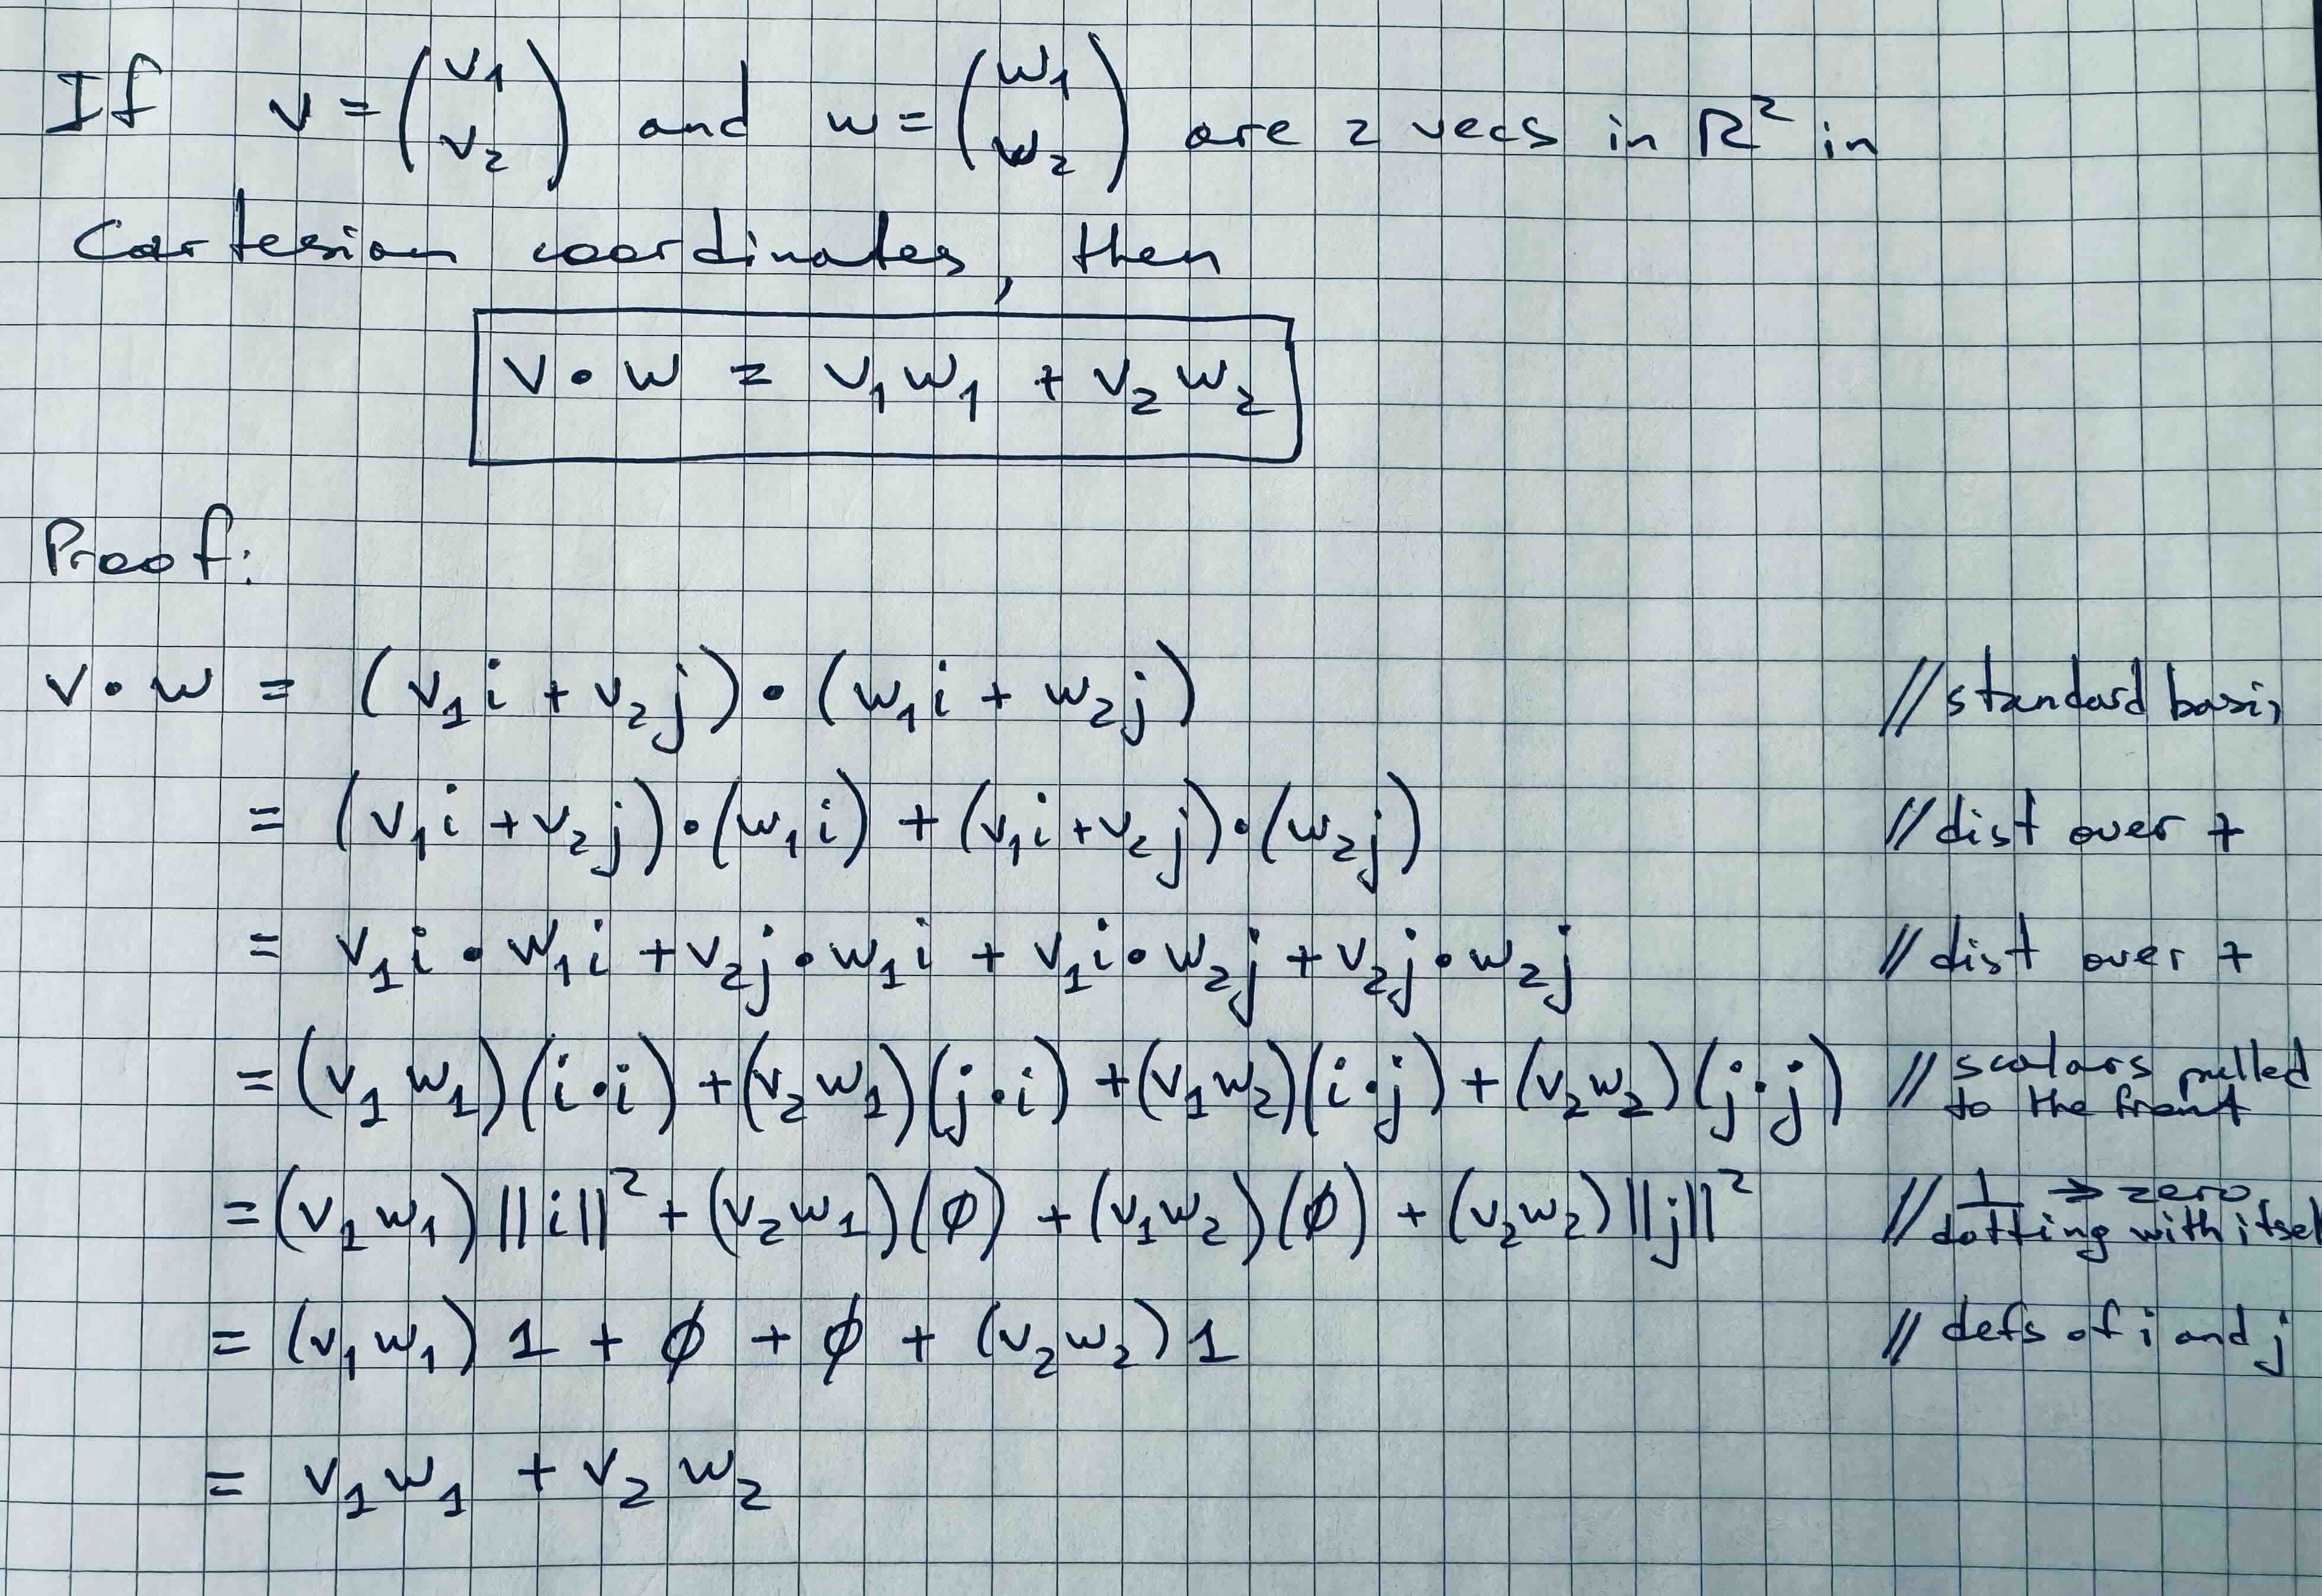 If v = (v₁ v₂) and w = (w₁ w₂) are 2 vecs in R² in
Cartesian coordinates, then
v • w = v₁w₁ + v₂w₂
Proof:
v • w = (v₁i + v₂j) • (w₁i + w₂j) // standard basis
= (v₁i + v₂j) • (w₁i) + (v₁i + v₂j) • (w₂j) // dist over +
= v₁i • w₁i + v₂j • w₁i + v₁i • w₂j + v₂j • w₂j // dist over +
= (v₁w₁)(i•i) + (v₂w₁)(j•i) + (v₁w₂)(i•j) + (v₂w₂)(j•j) // scalars pulled to the front
= (v₁w₁)||i||² + (v₂w₁)(∅) + (v₁w₂)(∅) + (v₂w₂)||j||² // ⊥ → zero, dotting with itsel
= (v₁w₁) 1 + ∅ + ∅ + (v₂w₂) 1 // defs of i and j
= v₁w₁ + v₂w₂